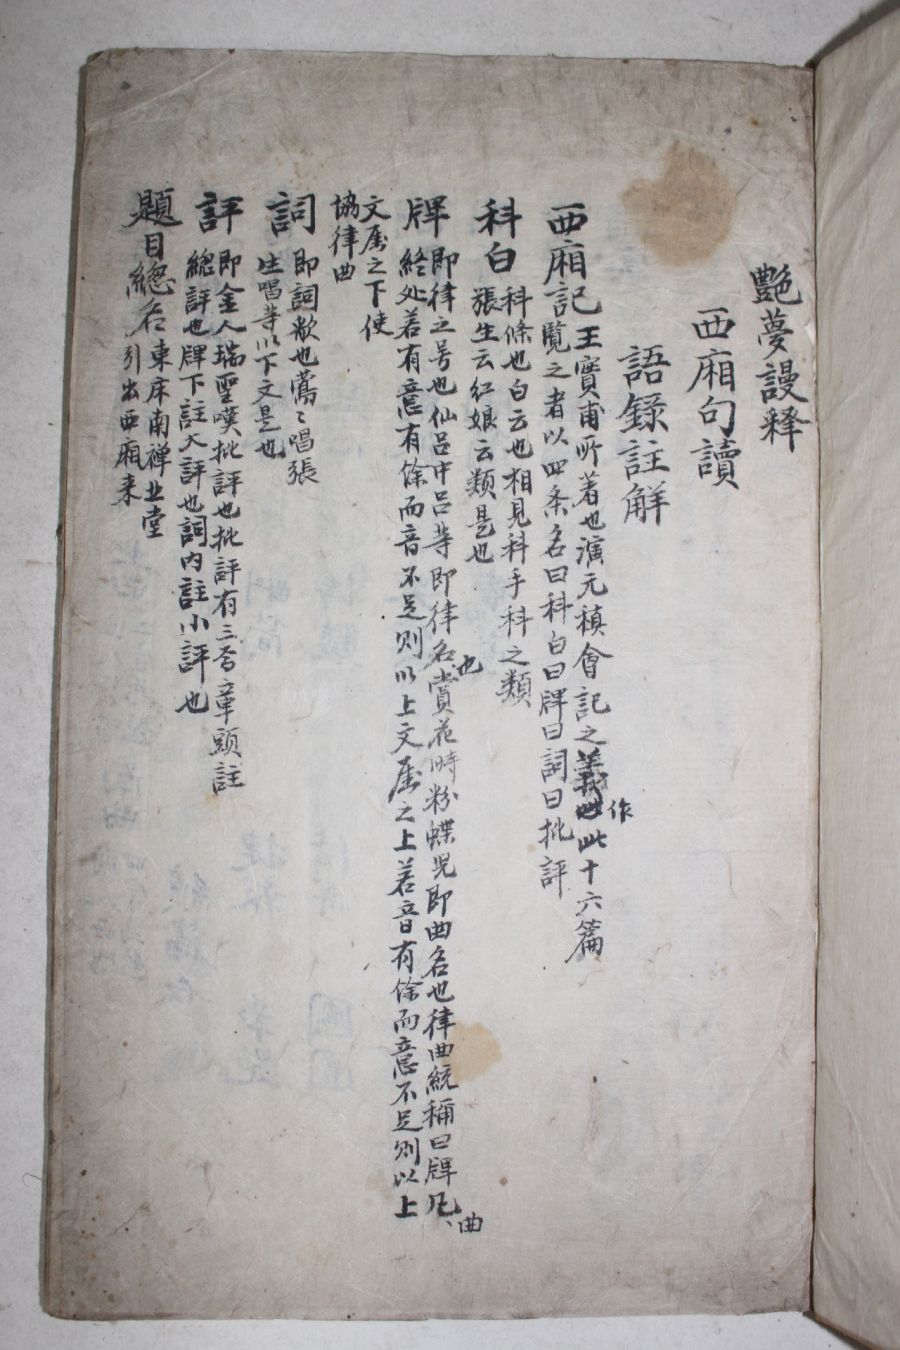 艶夢謾釋
西廂句讀
語錄註解
西廂記
王實甫所著也演元稹會記之義作此十六篇
覽之者以四条名曰科白曰牌曰詞曰批評
科白
科條也白云也相見科手科之類
張生云紅娘云類是也
牌
即律之号也仙呂中呂等即律名也賞花時粉蝶児即曲名也律曲統称曰牌凡曲
終処若有意有餘而音不足則以上文属之上若音有餘而意不足則以上
文属之下使
協律曲
詞
即詞歌也鶯〻唱張
生唱等以下文是也
評
即金人瑞聖嘆批評也批評有三焉章頭註
總評也牌下註大評也詞內註小評也
題目總名
東床南禅北堂
引出西廂来